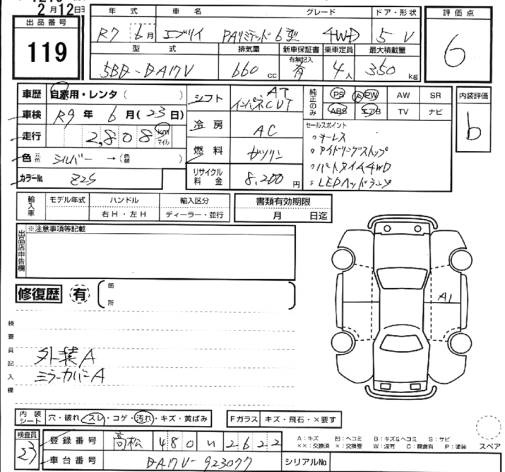 2月12日
出品番号
119
年式 車名 グレード ドア・形状
R7年 6月 エブリイ PAリミテッド 4WD 5 V
型式 排気量 新車保証書 乗車定員 最大積載量
有無記入
5BD-DA17V 660cc 有 4人 350kg
評価点
6
内装評価
b
車歴 自家用・レンタ( )
車検 R9年 6月(23日)
走行 2,808 km マイル
色 元色 シルバー → 色替( )
カラーNo. Z2S
シフト AT インパネCVT
冷房 AC
燃料 ガソリン
リサイクル料金 8,200円
純正のみ PS PW AW SR
ABS エアB TV ナビ
セールスポイント
。キーレス
。アイドリングストップ
。パートタイム4WD
。LEDヘッドランプ
輸入車 モデル年式 ハンドル 輸入区分
右H・左H ディーラー・並行
書類有効期限
月 日迄
出品店申告欄
※注意事項等記載
修復歴 有 箇所
A1
検査員記入欄
外装A
ミラーカバーA
内装シート 穴・破れ・スレ・コゲ・汚れ・キズ・黄ばみ
Fガラス キズ・飛石・×要す
A:キズ E:ヘコミ B:キズ&ヘコミ S:サビ
××:交換済 ×:交換要 W:波有 C:腐食有 P:塗装
スペア
検査員
23
登録番号 高松 480 い 2622
車台番号 DA17V-923077
シリアルNo.